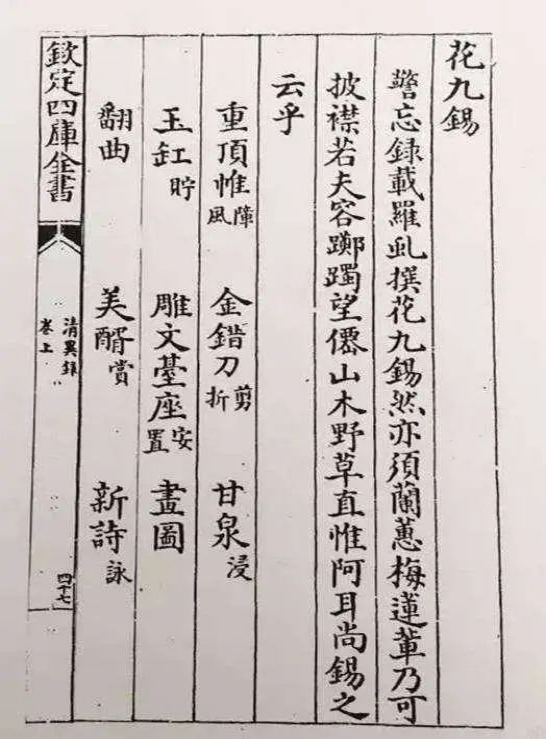 花九錫
警忘録載羅虬撰花九錫然亦須蘭蕙梅蓮軰乃可
披襟若夫容躑躅望僊山木野草直惟阿耳尚錫之
云乎
重頂帷障風 金錯刀剪折 甘泉浸
玉缸貯 雕文臺座安置 畫圖
翻曲 美醑賞 新詩詠
欽定四庫全書 清異録 卷上 四十七